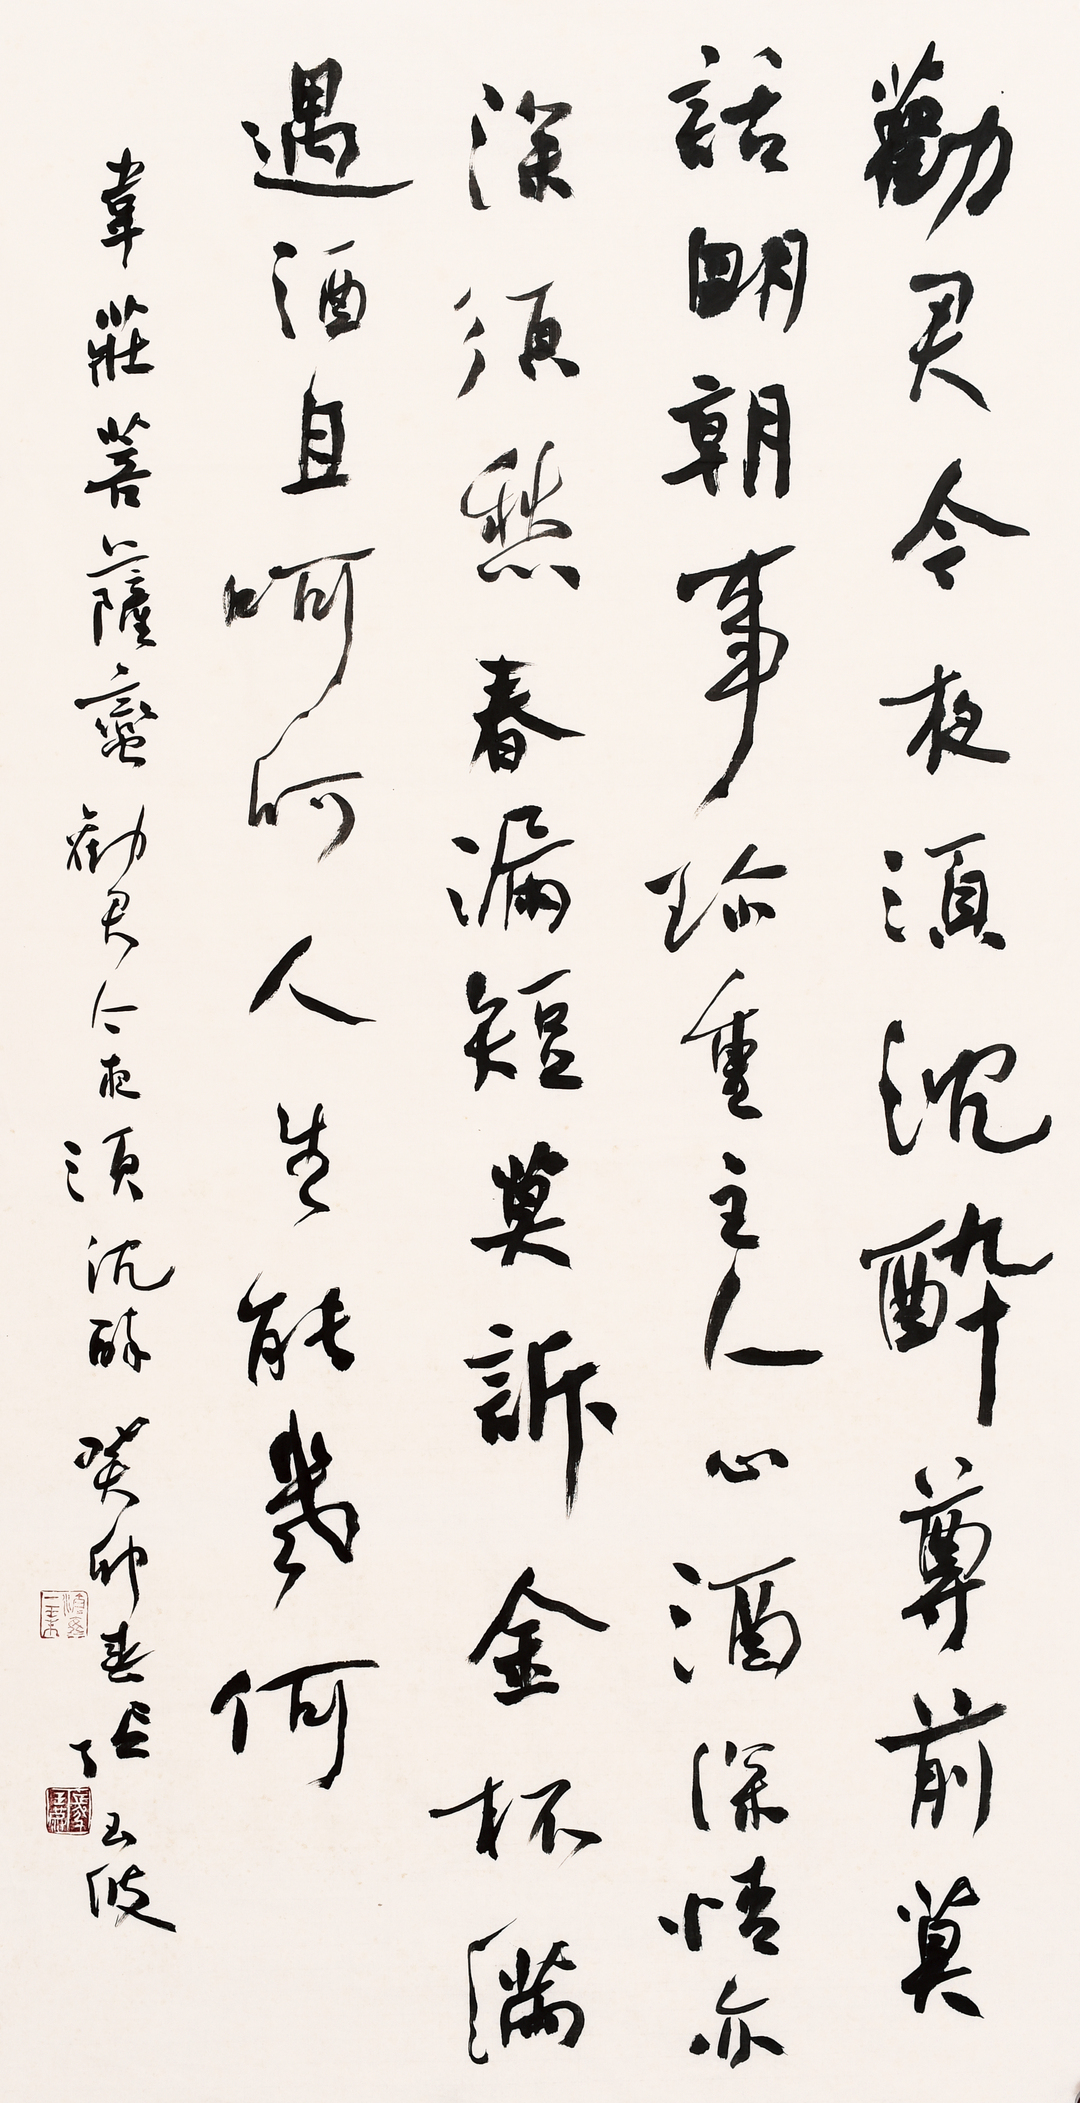 勸君今夜須沈醉尊前莫
話明朝事珍重主人心酒深情亦
深須愁春漏短莫訴金杯滿
遇酒且呵呵人生能幾何
韋莊菩薩蠻 勸君今夜須沈醉 癸卯春